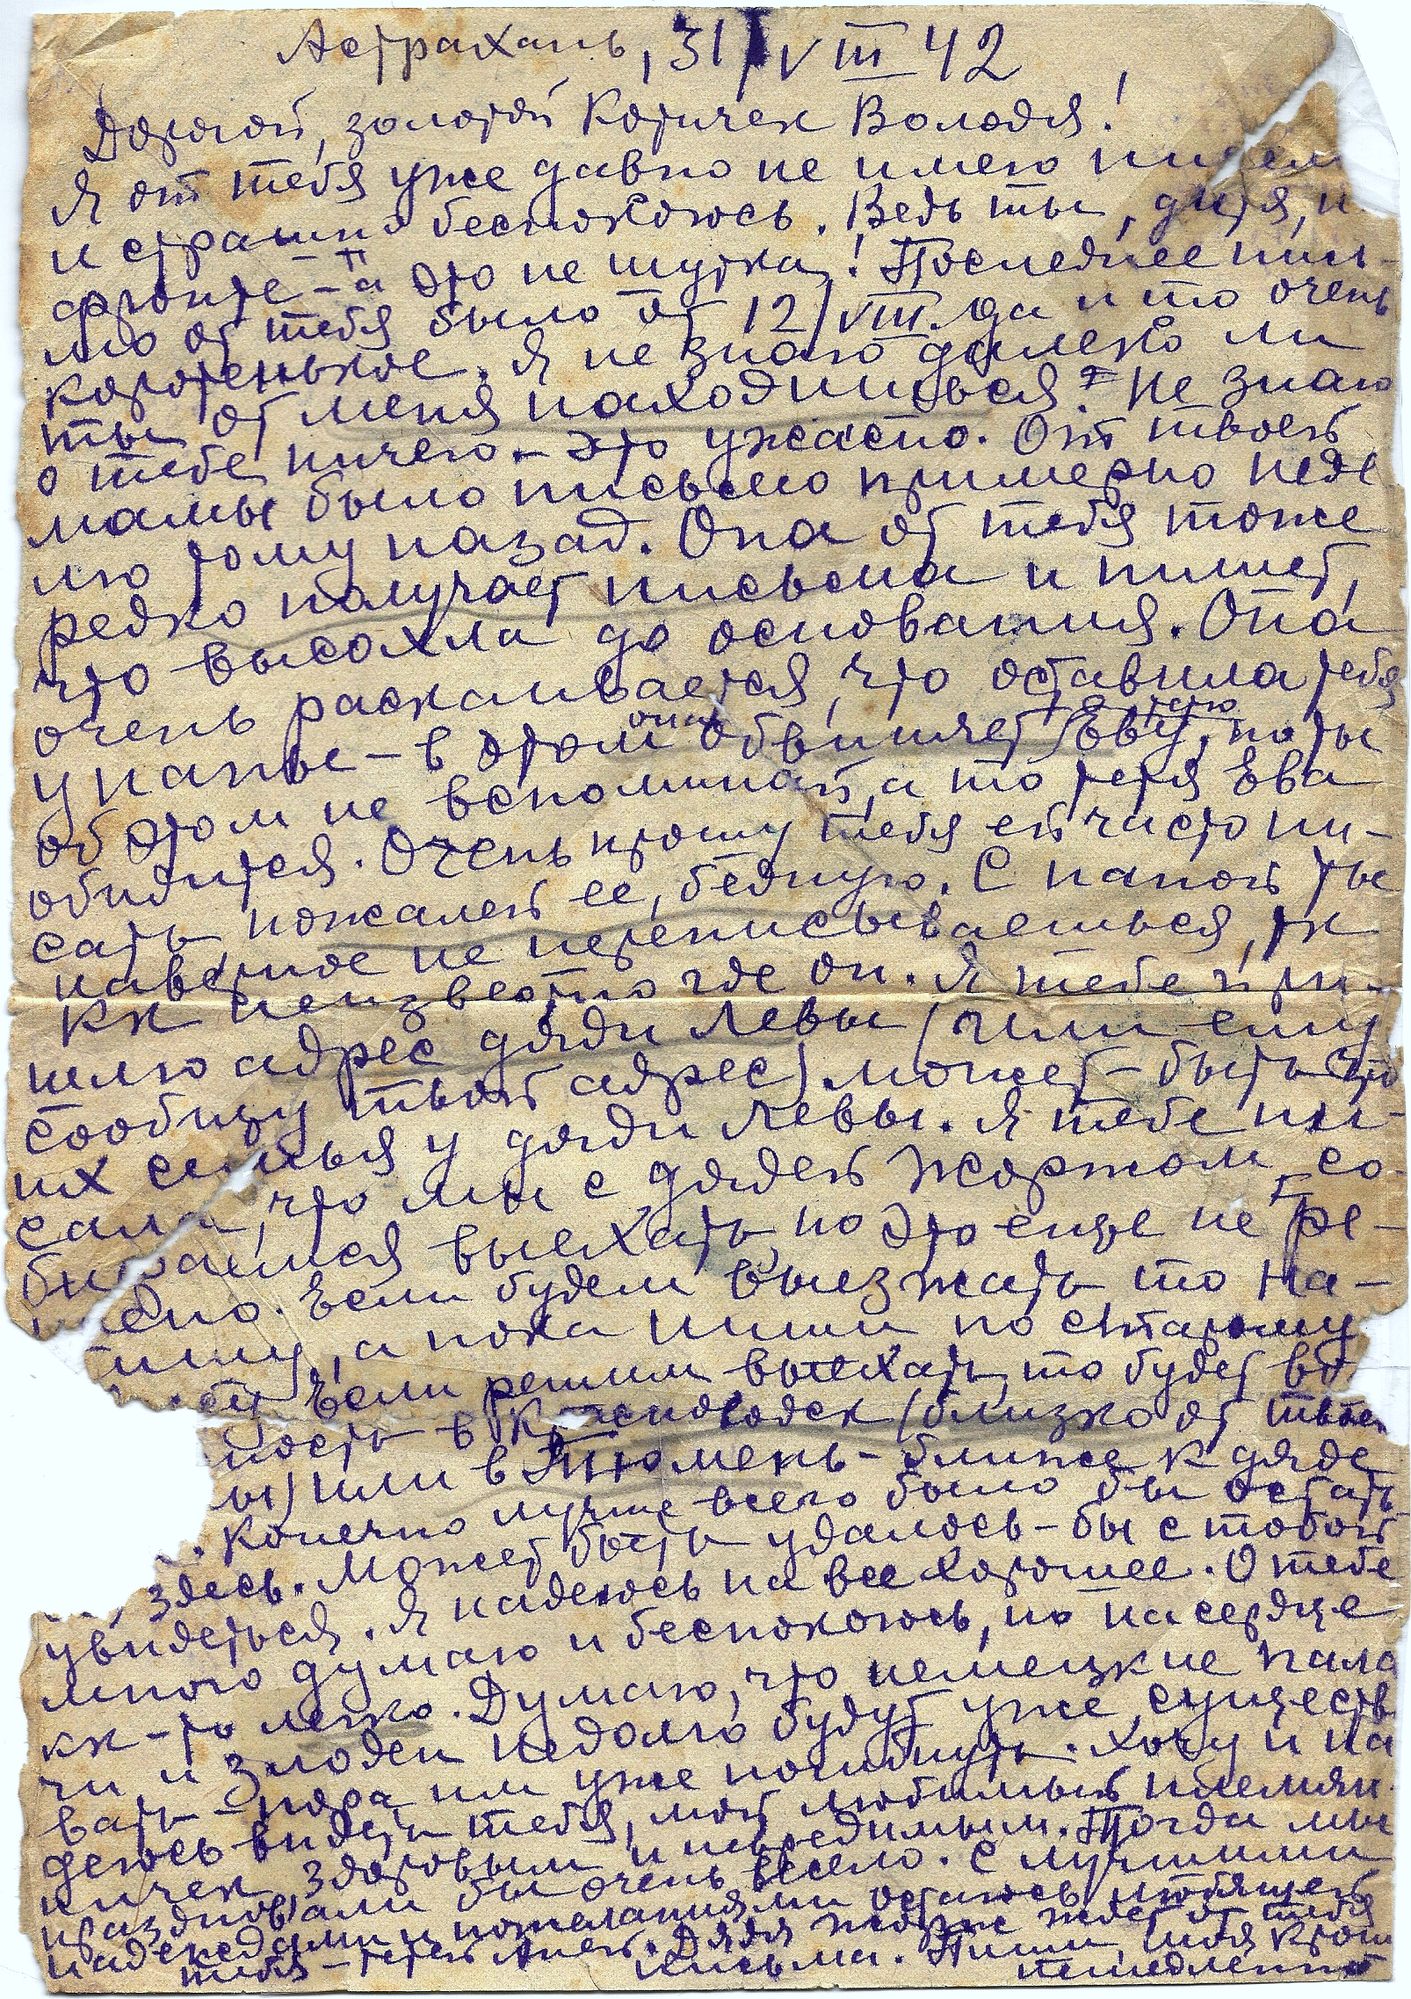 Астрахань, 31/VIII 42
Дорогой, золотой Котичек Володя!
Я от тебя уже давно не имею писем
и страшно беспокоюсь. Ведь ты, дитя, н
фронте – а это не шутка! Последнее пись-
мо от тебя было от 12/VIII. да и то очень
коротенькое. Я не знаю далеко ли
ты от меня находишься? Не знаю
о тебе ничего – это ужасно. От твоей
мамы было письмо примерно неде
лю тому назад. Она от тебя тоже
редко получает письма и пишет,
что высохла до основания. Она
очень раскаивается, что оставила тебя
у папы – в этом она обвиняет тетю Еву, но ты
об этом не вспоминай, а то тетя Ева
обидится. Очень прошу тебя ей часто пи-
сать пожалей ее, бедную. С папой ты
наверное не переписываешься, тк
кк неизвестно где он. Я тебе приш-
шлю адрес дяди Левы (или ему
сообщу твой адрес) может-быть что
их семья у дяди Левы. Я тебе пи-
сала, что мы с дядей Жоржом со-
бираемся выехать, но это еще не ре-
шено. Если будем выезжать то на-
пишу, а пока пиши по старому
Если решим выехать, то будет во
ность в Красноводск (близко от твоей
ы) или в Тюмень – ближе к дяде
. Конечно лучше всего было бы остать
здесь. Может быть удалось-бы с тобой
увидеться. Я надеюсь на все хорошее. О тебе
много думаю и беспокоюсь, но на сердце
кк-то легко. Думаю, что немецкие пала
чи и злодеи недолго будут уже существ
вать – пора им уже погибнуть. Хочу и на
деюсь видеть тебя, мой любимый племян-
ничек здоровым и невредимым. Тогда мы
праздновали бы очень весело. С лучшими
надеждами и пожеланиями остаюсь любящей
тебя – тетей Аней. Дядя Жорж ждет от тебя
письма. Пиши, моя крош
немедленно